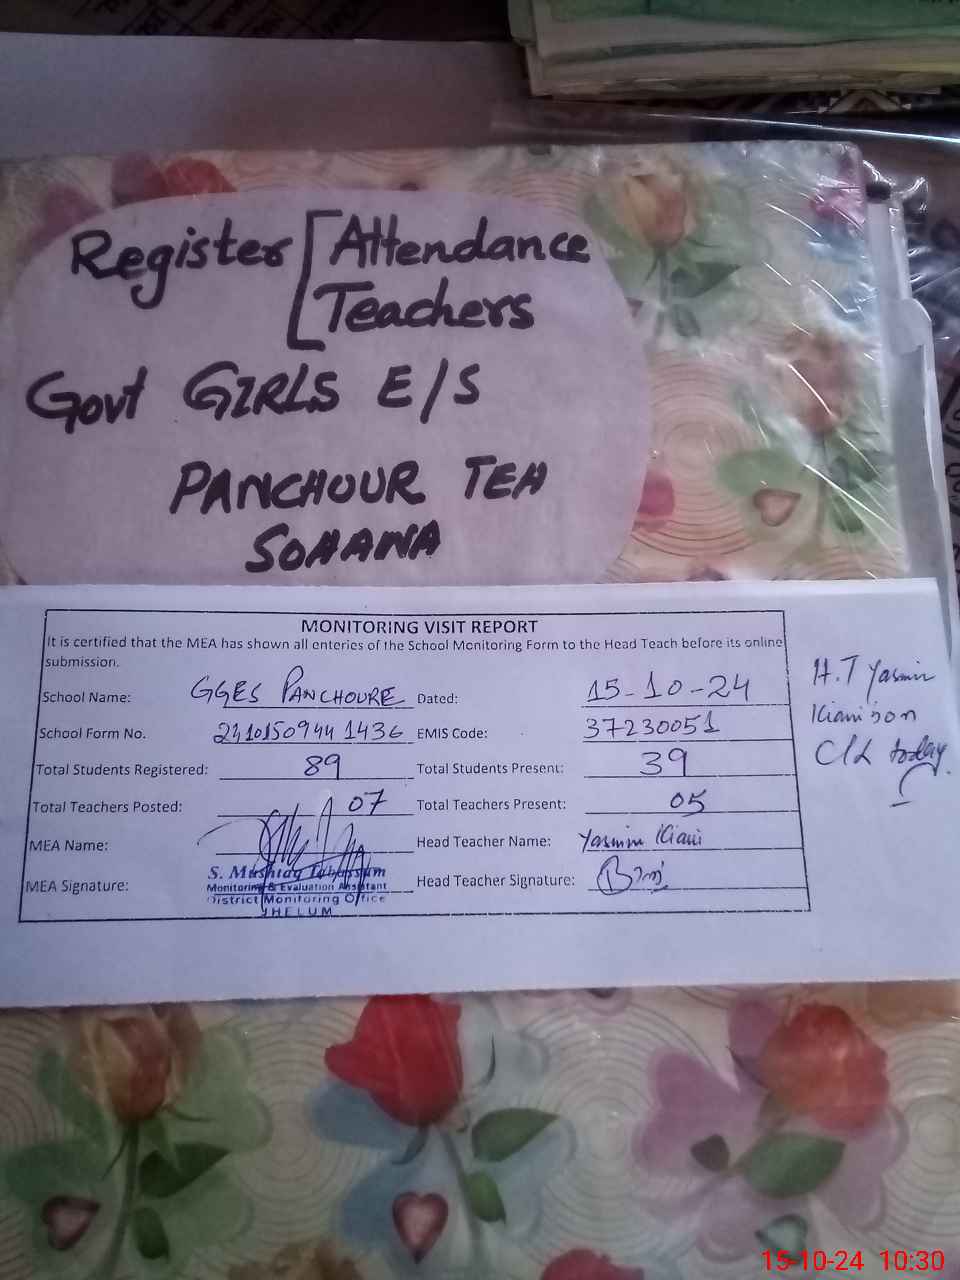 Register [ Attendance
Teachers
Govt GIRLS E/S
PANCHOUR TEH
SOHAWA
MONITORING VISIT REPORT
It is certified that the MEA has shown all enteries of the School Monitoring Form to the Head Teach before its online
submission.
School Name: GGES PANCHOURE Dated: 15-10-24
School Form No. 2410150944 1436 EMIS Code: 37230051
Total Students Registered: 89 Total Students Present: 39
Total Teachers Posted: 07 Total Teachers Present: 05
MEA Name: Head Teacher Name: Yasmin Kiani
MEA Signature: Head Teacher Signature:
S. Mushtaq Tabassum
Monitoring & Evaluation Assistant
District Monitoring Office
JHELUM
H.T Yasmin
Kiani is on
C/L today.
15-10-24 10:30